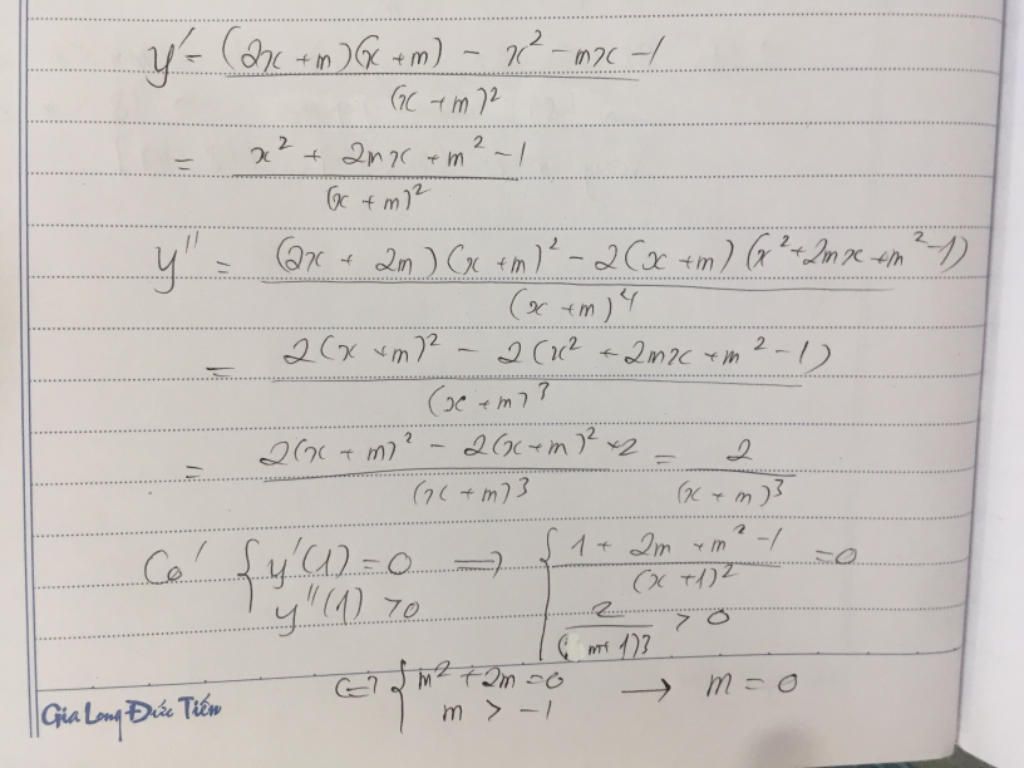 y' = ((2x + m)(x + m) - x² - mx - 1)/(x + m)²
= (x² + 2mx + m² - 1)/(x + m)²
y'' = ((2x + 2m)(x + m)² - 2(x + m)(x² + 2mx + m² - 1))/(x + m)⁴
= (2(x + m)² - 2(x² + 2mx + m² - 1))/(x + m)³
= (2(x + m)² - 2(x + m)² + 2)/(x + m)³ = 2/(x + m)³
Có { y'(1) = 0 ⟹ { (1 + 2m + m² - 1)/(x + 1)² = 0
y''(1) > 0 2/(m+1)³ > 0
⟺ { m² + 2m = 0 → m = 0
m > -1
Gia Long Đức Tiến